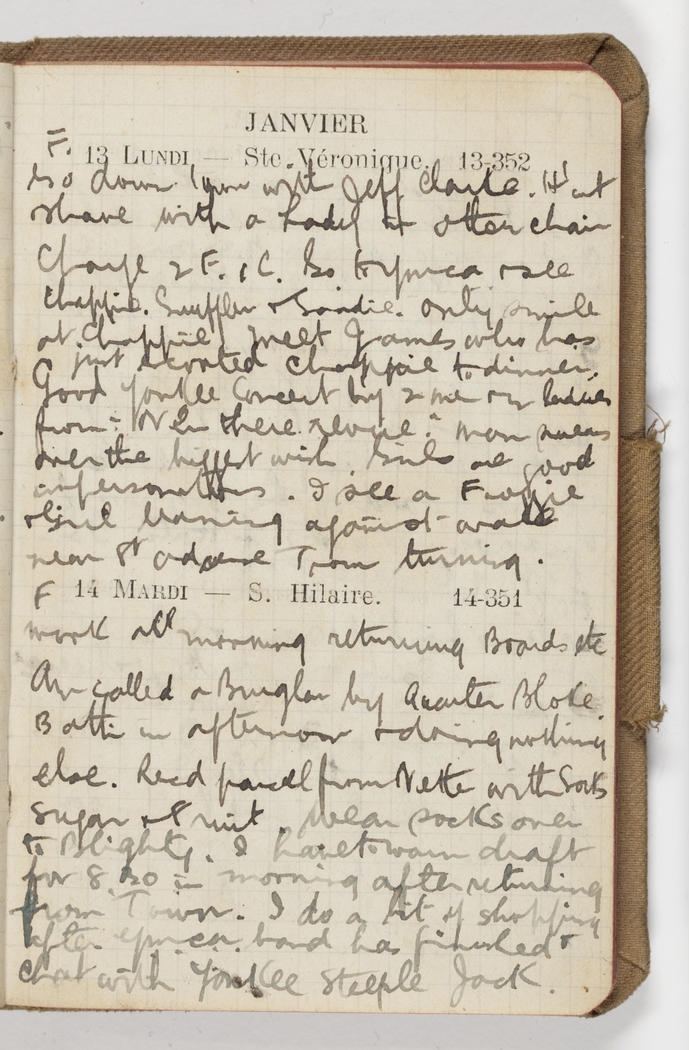 JANVIER
F. 13 LUNDI — Ste. Véronique. 13-352
Go down Town with Jeff Clarke. H'cut
shave with a Lady at other chair
Charge 2 F. 1 C. Go to Ymca & see
Chappie. Snuffler & Sandie. Only smile
at Chappie. Meet James who has
just escorted Chappie to dinner.
Good Yankee Concert by 2 men &  ladies
from: " there revue". Man
over the biggest wish. Girls are good
impersonations. I see a Froggie
& Girl leaning against wall
near St Tram turning.
F 14 MARDI — S. Hilaire. 14-351
work all morning returning Boards etc
Am called a Burglar by Quarter Bloke
Bath in afternoon & doing nothing
else. Recd parcel from Nette with Socks
Sugar & Fruit. Wear socks over
to Blighty. I have to warn draft
for 8.30 in morning after returning
from Town. I do a bit of shopping
after Ymca. band has finished &
chat with Yankee Steeple Jack.